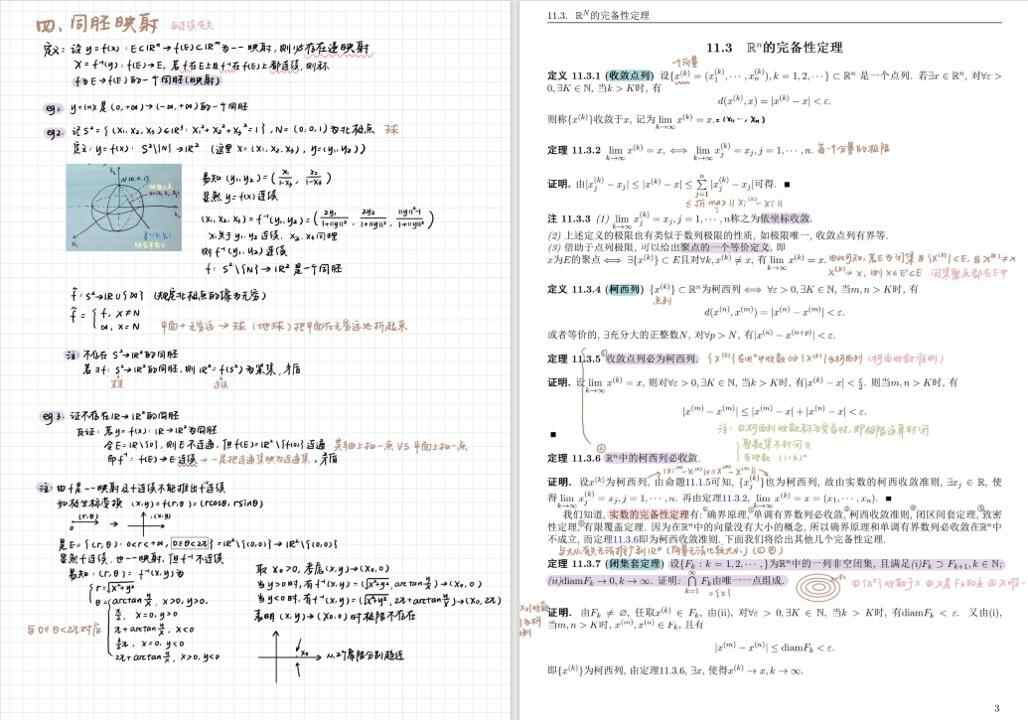 四、同胚映射
定义: 设 y=f(x): E⊂ℝⁿ→f(E)⊂ℝᵐ为一一映射, 则必存在逆映射
x=f⁻¹(y): f(E)→E, 若f在E上且f⁻¹在f(E)上都连续, 则称
f为E→f(E)的一个同胚(映射)
eg1: y=lnx是(0,+∞)→(-∞,+∞)的一个同胚
eg2: 记S²={(x₁,x₂,x₃)∈ℝ³: x₁²+x₂²+x₃²=1}, N=(0,0,1)为北极点 球
定义: y=f(x): S²\{N}→ℝ² (这里 x=(x₁,x₂,x₃), y=(y₁,y₂))
易知 (y₁,y₂)=(x₁/(1-x₃), x₂/(1-x₃))
显然 y=f(x)连续
(x₁,x₂,x₃)=f⁻¹(y₁,y₂)=(2y₁/(1+||y||²), 2y₂/(1+||y||²), (||y||²-1)/(1+||y||²))
x₁关于y₁,y₂连续, x₂,x₃同理
则 f⁻¹(y₁,y₂)连续
f: S²\{N}→ℝ²是一个同胚
f̃: S²→ℝ∪{∞} (规定北极点的像为无穷)
f̃={ f, x≠N
∞, x=N
平面+无穷远→球 (地球) 把平面在无穷远地折起来
注: 不存在 S²→ℝ²的同胚
若∃f: S²→ℝ²的同胚, 则ℝ²=f(S²)为紧集, 矛盾
eg3: 证不存在ℝ→ℝ²的同胚
反证: 若y=f(x): ℝ→ℝ²为同胚
令E=ℝ\{0}, 则E不连通, 但f(E)=ℝ²\{f(0)}连通 直线上扣一点 VS 平面上扣一点
即f⁻¹: f(E)→E连续→一定把连通集映为连通集, 矛盾
注: 由f是一一映射及f连续不能推出f⁻¹连续
如极坐标变换 (x,y)=f(r,θ)=(rcosθ, rsinθ)
是E={(r,θ): 0<r<+∞, 0≤θ<2π}=ℝ²\{(0,0)}→ℝ²\{(0,0)}
显然f连续, 也一一映射, 但f⁻¹不连续
易知: (r,θ)=f⁻¹(x,y)为
r=√(x²+y²)
θ= arctan y/x, x>0, y≥0.
π/2, x=0, y>0
π+arctan y/x, x<0
3/2π, x=0, y<0
2π+arctan y/x, x>0, y<0
与0≤θ<2π对应
取x₀>0, 考虑(x,y)→(x₀,0)
当y>0时, 有f⁻¹(x,y)=(√(x²+y²), arctan y/x)→(x₀,0)
当y<0时, 有f⁻¹(x,y)=(√(x²+y²), 2π+arctan y/x)→(x₀,2π)
表明(x,y)→(x₀,0)时极限不存在
从2个象限分别趋近
11.3. ℝᴺ的完备性定理
11.3 ℝⁿ的完备性定理
定义 11.3.1 (收敛点列) 设{x⁽ᵏ⁾=(x₁⁽ᵏ⁾,⋯,xₙ⁽ᵏ⁾), k=1,2,⋯}⊂ℝⁿ 是一个点列. 若∃x∈ℝⁿ, 对∀ε>
0, ∃K∈ℕ, 当k>K时, 有
d(x⁽ᵏ⁾,x)=|x⁽ᵏ⁾-x|<ε.
则称{x⁽ᵏ⁾}收敛于x, 记为lim_{k→∞} x⁽ᵏ⁾=x. =(x₁⋯,xₙ)
定理 11.3.2 lim_{k→∞} x⁽ᵏ⁾=x, ⟺ lim_{k→∞} xⱼ⁽ᵏ⁾=xⱼ, j=1,⋯,n. 每一个分量的极限
证明. 由|xⱼ⁽ᵏ⁾-xⱼ|≤|x⁽ᵏ⁾-x|≤∑ⱼ₌₁ⁿ|xⱼ⁽ᵏ⁾-xⱼ|可得. ■
注 11.3.3 (1) lim_{k→∞} xⱼ⁽ᵏ⁾=xⱼ, j=1,⋯,n称之为依坐标收敛.
(2) 上述定义的极限也有类似于数列极限的性质, 如极限唯一, 收敛点列有界等.
(3) 借助于点列极限, 可以给出聚点的一个等价定义, 即
x为E的聚点⟺∃{x⁽ᵏ⁾}⊂E且对∀k, x⁽ᵏ⁾≠x, 有lim_{k→∞} x⁽ᵏ⁾=x.
闭集聚点都在E中
定义 11.3.4 (柯西列) {x⁽ᵏ⁾}⊂ℝⁿ为柯西列⟺∀ε>0, ∃K∈ℕ, 当m,n>K时, 有
点列
d(x⁽ⁿ⁾,x⁽ᵐ⁾)=|x⁽ⁿ⁾-x⁽ᵐ⁾|<ε.
或者等价的, ∃充分大的正整数N, 对∀p>N, 有|x⁽ⁿ⁾-x⁽ⁿ⁺ᵖ⁾|<ε.
定理 11.3.5 收敛点列必为柯西列.
证明. 设lim_{k→∞} x⁽ᵏ⁾=x, 则对∀ε>0, ∃K∈ℕ, 当k>K时, 有|x⁽ᵏ⁾-x|<ε/2. 则当m,n>K时, 有
|x⁽ⁿ⁾-x⁽ᵐ⁾|≤|x⁽ᵐ⁾-x|+|x⁽ⁿ⁾-x|<ε.
■
定理 11.3.6 ℝⁿ中的柯西列必收敛.
证明. 设x⁽ᵏ⁾为柯西列, 由命题11.1.5可知, {xⱼ⁽ᵏ⁾}也为柯西列, 故由实数的柯西收敛准则, ∃xⱼ∈ℝ, 使
得lim_{k→∞} xⱼ⁽ᵏ⁾=xⱼ, j=1,⋯,n. 再由定理11.3.2, lim_{k→∞} x⁽ᵏ⁾=x=(x₁,⋯,xₙ). ■
我们知道, 实数的完备性定理有: 确界原理, 单调有界数列必收敛, 柯西收敛准则, 闭区间套定理, 致密
性定理, 有限覆盖定理. 因为在ℝⁿ中的向量没有大小的概念, 所以确界原理和单调有界数列必收敛在ℝⁿ中
不成立, 而定理11.3.6即为柯西收敛准则. 下面我们将给出其他几个完备性定理.
定理 11.3.7 (闭集套定理) 设{Fₖ: k=1,2,⋯,}为ℝⁿ中的一列非空闭集, 且满足(i)Fₖ⊃Fₖ₊₁, k∈ℕ;
(ii)diamFₖ→0, k→∞. 证明: ∩ₖ₌₁^∞ Fₖ由唯一一点组成.
证明. 由Fₖ≠∅, 任取x⁽ᵏ⁾∈Fₖ, 由(ii), 对∀ε>0, ∃K∈ℕ, 当k>K时, 有diamFₖ<ε. 又由(i),
当m,n>K时, x⁽ᵐ⁾,x⁽ⁿ⁾∈Fₖ, 且有
|x⁽ᵐ⁾-x⁽ⁿ⁾|≤diamFₖ<ε.
即{x⁽ᵏ⁾}为柯西列, 由定理11.3.6, ∃x, 使得x⁽ᵏ⁾→x, k→∞.
3